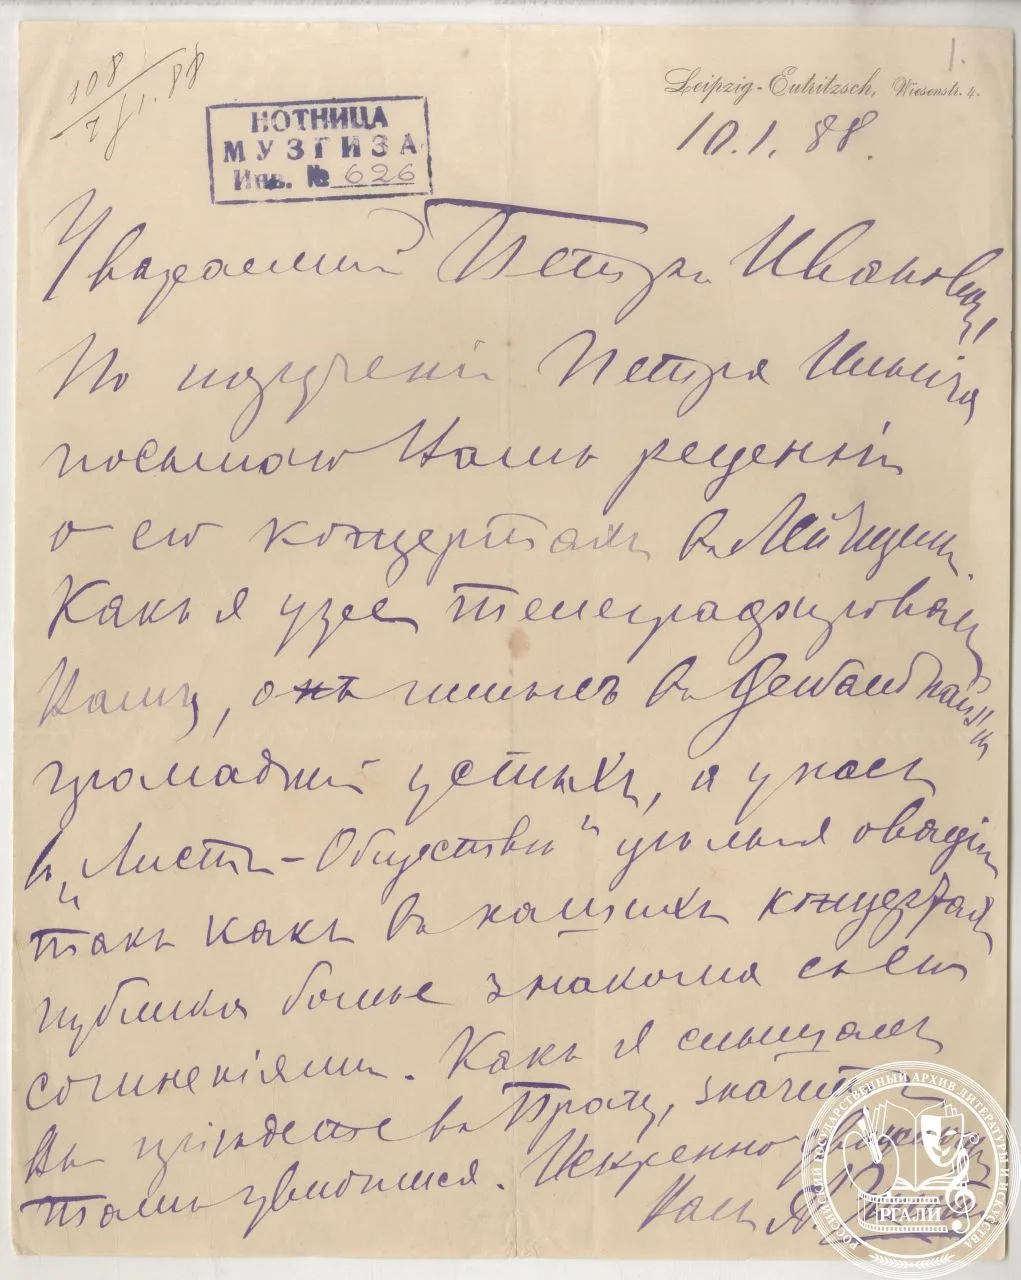 108
7/I.88
1.
НОТНИЦА
МУЗГИЗА
Инв. № 626
Leipzig-Eutritzsch, Wiesenstr. 4.
10.1.88.
Уважаемый Петръ Ивановичъ,
По порученію Петра Ильича
посылаю Вамъ рецензіи
о его концертахъ въ Лейпцигѣ.
Какъ я уже телеграфировалъ
Вамъ, онъ имѣлъ въ Гевандгаузѣ
громадный успѣхъ, а у насъ
въ „Листъ-Обществѣ“ цѣлыя оваціи
такъ какъ въ нашихъ концертахъ
публика болѣе знакома съ его
сочиненіями. Какъ я слышалъ
Вы пріѣдете въ Прагу, значитъ
тамъ увидимся. Искренно уважающій
Васъ А.
РОССИЙСКИЙ ГОСУДАРСТВЕННЫЙ АРХИВ ЛИТЕРАТУРЫ И ИСКУССТВА
РГАЛИ